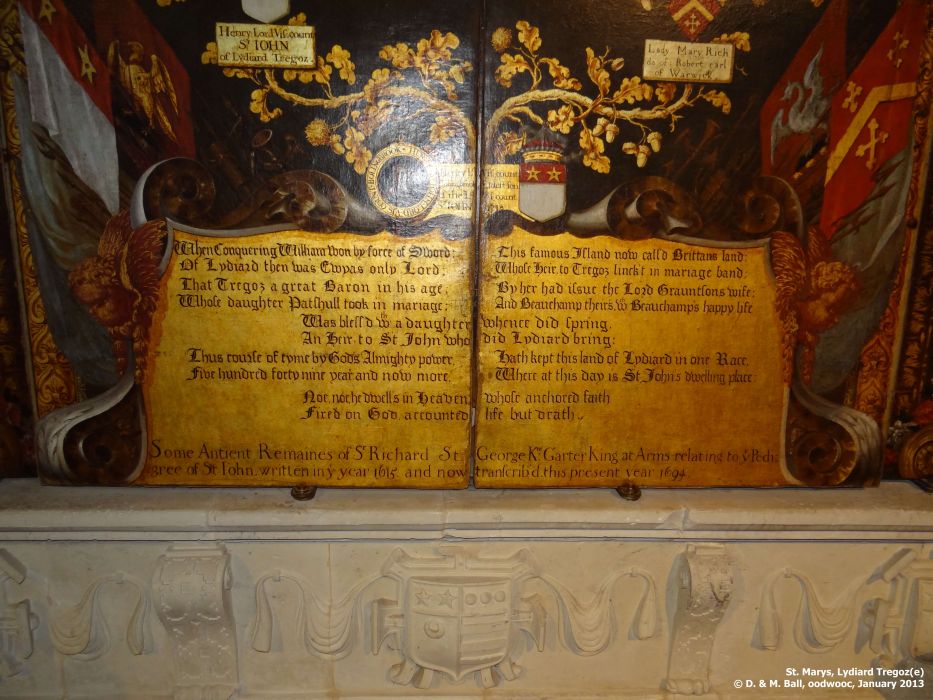 Henry Lord Viscount
St IOHN
of Lydiard Tregoz
Lady Mary Rich
da of: Robert earl
of Warwick
When Conquering William won by force of Sword:
This famous Island now call'd Brittans land:
Of Lydiard then was Ewyas only Lord;
Whose Heir, to Tregoz linck't in mariage band;
That Tregoz a great Baron in his age,
By her had issue the Lord Grauntsons wife;
Whose daughter Patshull took in mariage;
And Beauchamp theirs, wch Beauchamps happy life
Was bless'd wth a daughter whence did spring,
An Heir to St John who did Lydiard bring:
Thus course of tyme by God's Almighty power,
Hath kept this land of Lydiard in one Race,
Five hundred forty nine year and now more,
Where at this day is St John's dwelling place:
No: no: he dwells in Heaven, whose anchored faith
Fixed on God accounted life but death.
Some Antient Remaines of Sr Richard St George Kt. Garter King at Arms relating to ye Pedi:
gree of St Iohn, written in ye year 1615. and now transcrib'd, this present year 1694.
St. Marys, Lydiard Tregoz(e)
© D. & M. Ball, oodwooc, January 2013